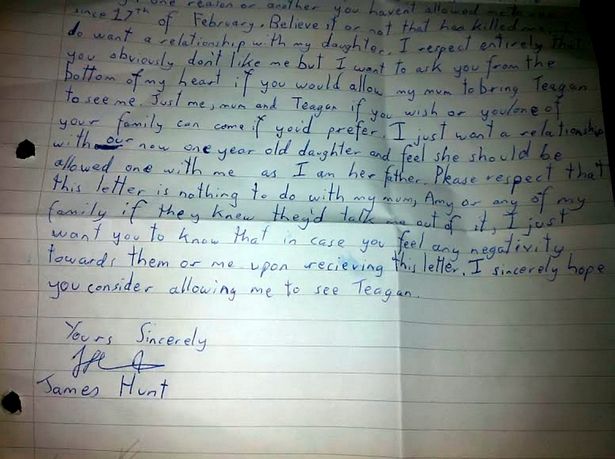 one reason or another you havent allowed me to
since 17th of February. Believe it or not that has killed me. I
do want a relationship with my daughter. I respect entirely that
you obviously dont like me but I want to ask you from the
bottom of my heart if you would allow my mum to bring Teagan
to see me. Just me, mum and Teagan if you wish or you/one of
your family can come if you'd prefer. I just want a relationship
with our now one year old daughter and feel she should be
allowed one with me as I am her father. Please respect that
this letter is nothing to do with my mum, Amy or any of my
family if they knew they'd talk me out of it, I just
want you to know that in case you feel any negativity
towards them or me upon recieving this letter. I sincerely hope
you consider allowing me to see Teagan.
Yours Sincerely
James Hunt